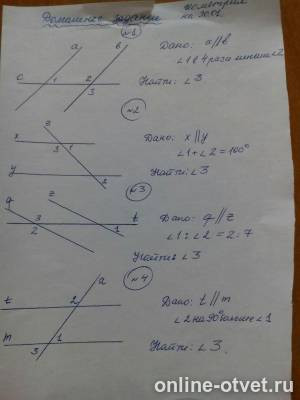 Домашнее задание
геометрия
на 30.01
№1
а
в
Дано: а||в
∠1 в 4 раза меньше ∠2
с
1
2
3
Найти: ∠3
№2
z
x
3
1
Дано: x||y
∠1+∠2=100°
y
2
Найти: ∠3
№3
q
z
3
t
Дано: q||z
2
1
∠1:∠2=2:7
Найти: ∠3
№4
а
t
2
Дано: t||m
∠2 на 90° больше ∠1
m
1
3
Найти: ∠3.
online-otvet.ru